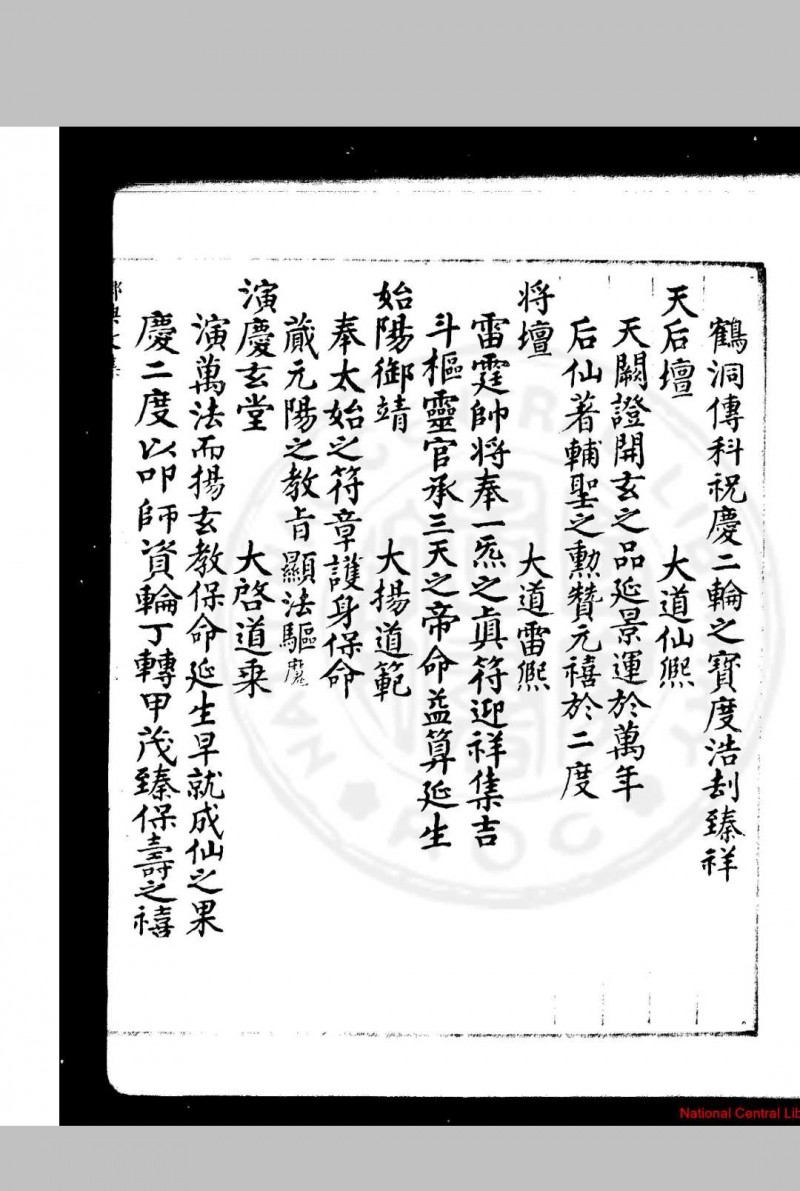 鶴洞傳科祝慶二輪之寶度浩刦臻祥
天后壇　大道仙熈
天闕證開玄之品延景運於萬年
后仙著輔聖之勲贊元禧於二度
将壇　大道雷熈
雷霆帥将奉一炁之真符迎祥集吉
斗樞靈官承三天之帝命益算延生
始陽御靖　大揚道範
奉太始之符章護身保命
蕆元陽之教旨顯法驅魔
演慶玄堂　大啓道乗
演萬法而揚玄教保命延生早就成仙之果
慶二度以叩師資輪丁轉甲茂臻保壽之禧
National Central Lib